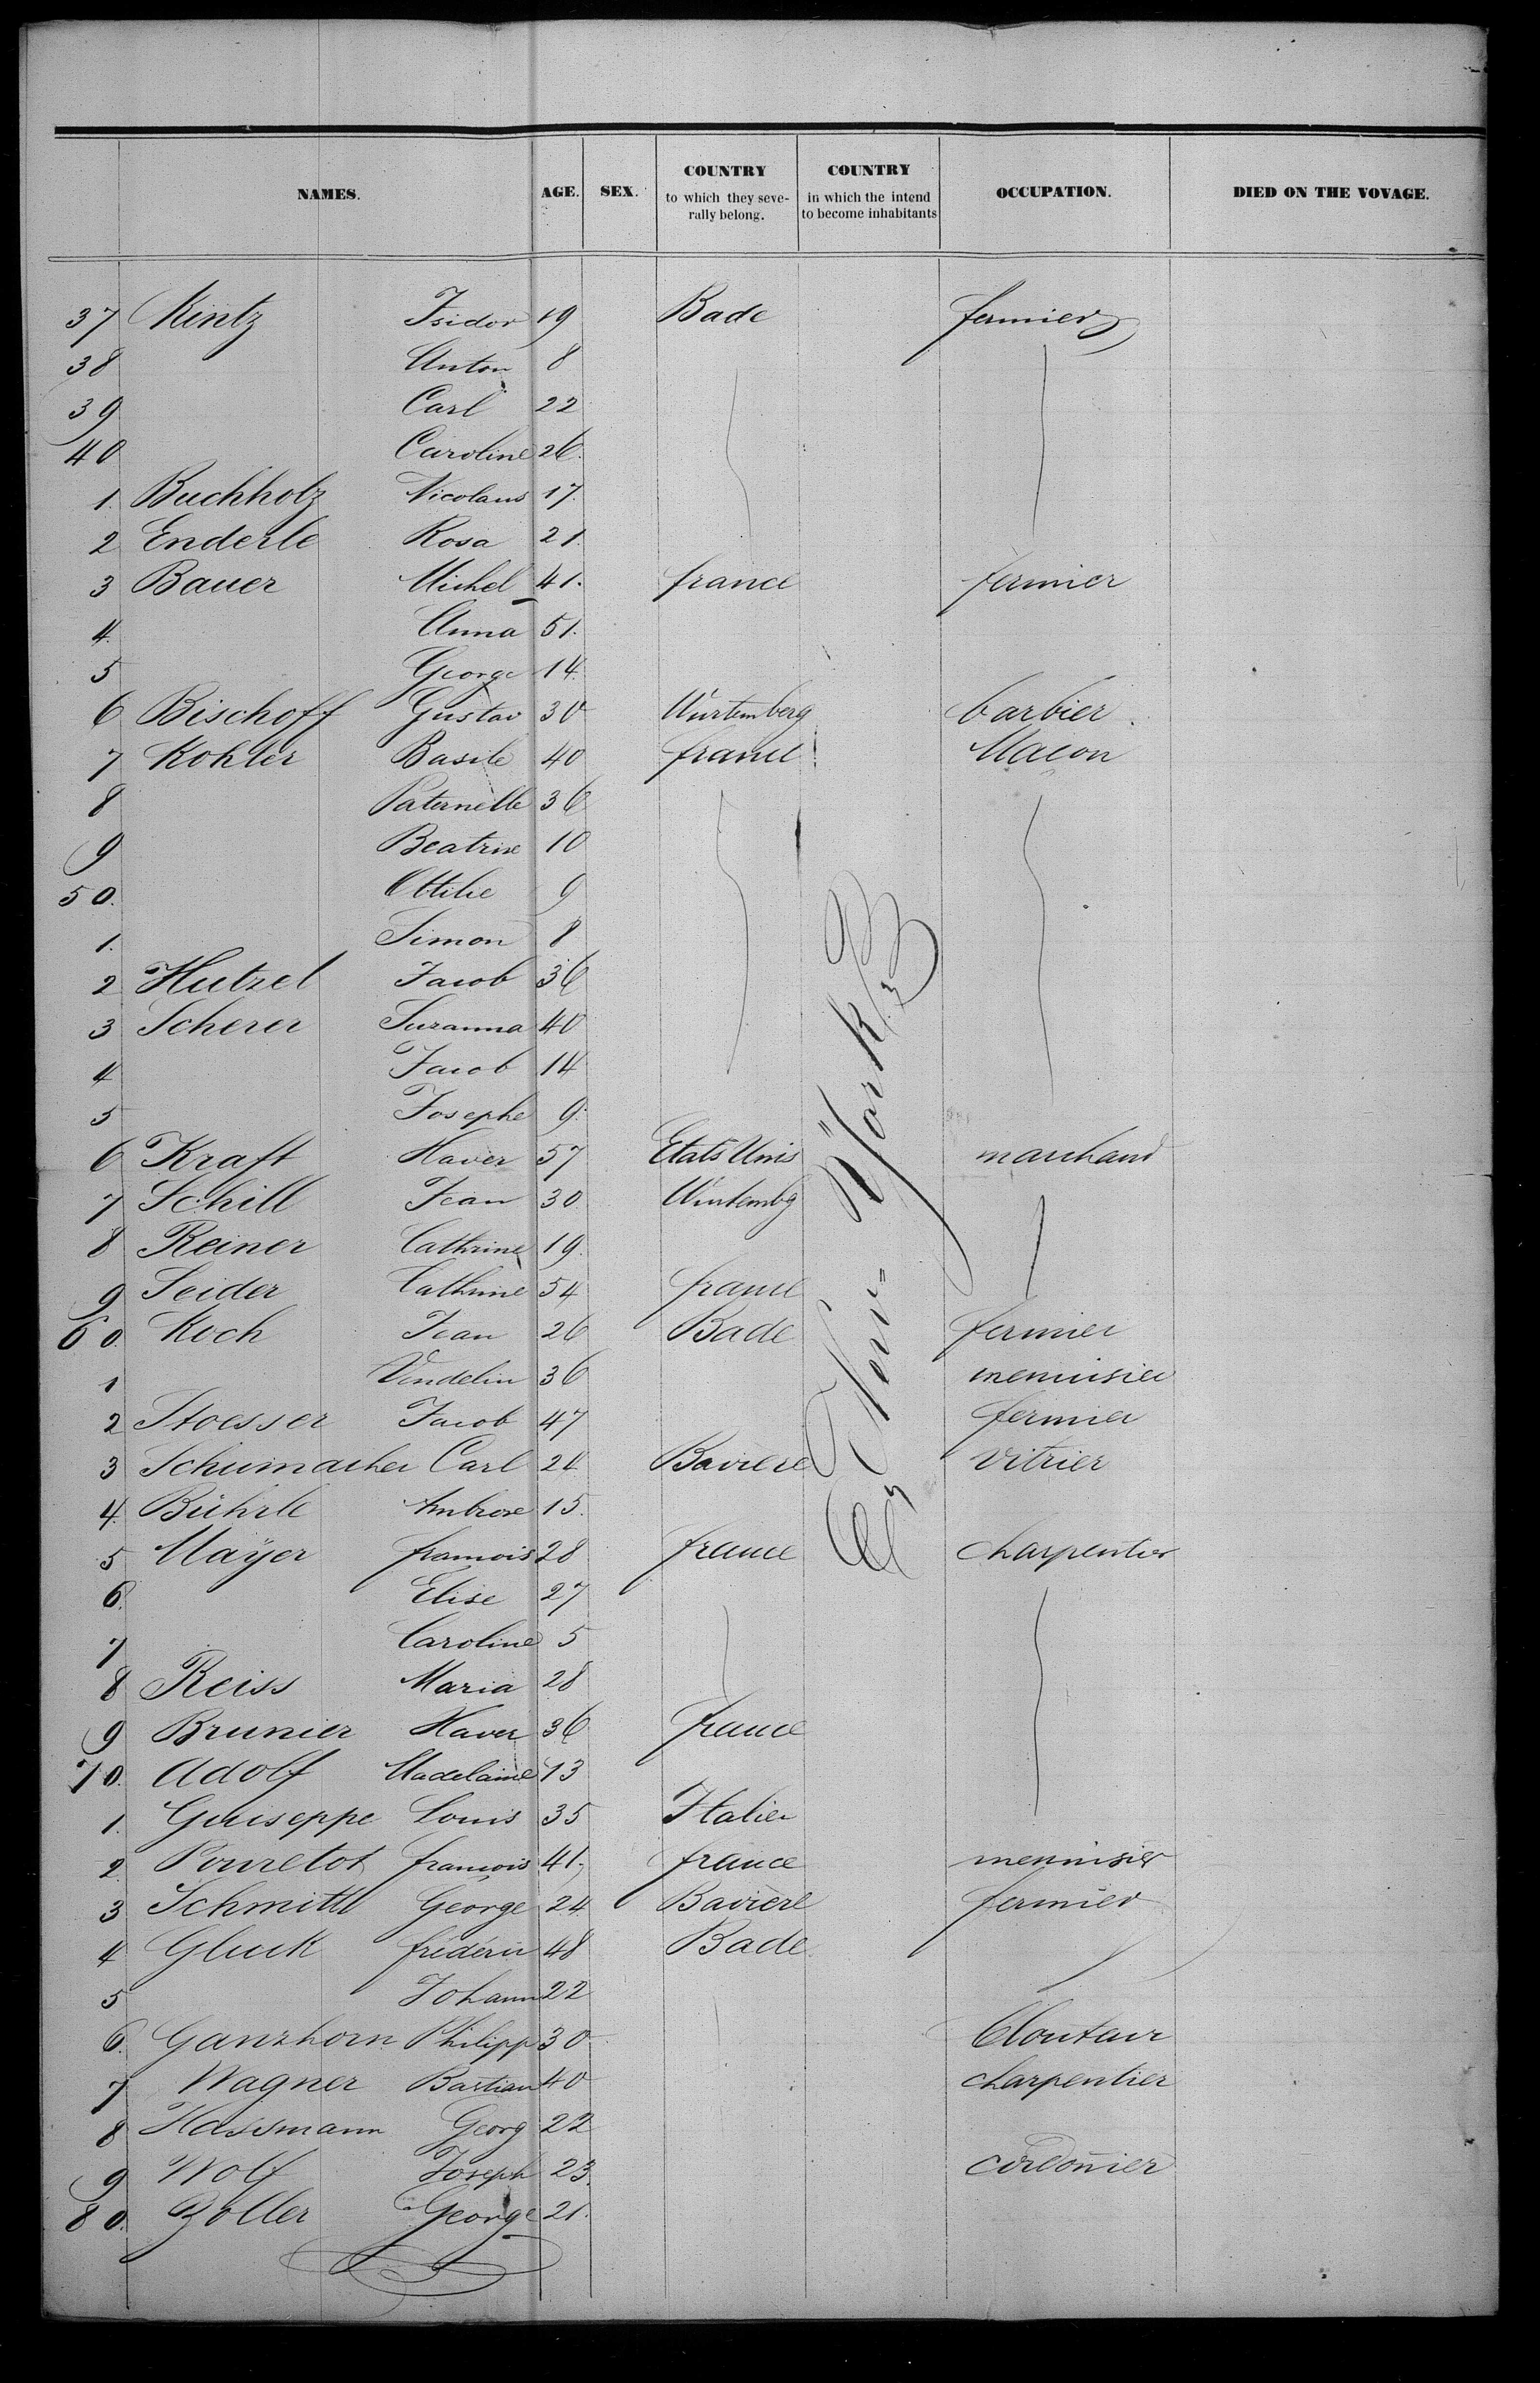 NAMES. AGE. SEX. COUNTRY to which they seve-rally belong. COUNTRY in which the intend to become inhabitants OCCUPATION. DIED ON THE VOVAGE.
37 Kintz Isidor 19 Bade fermier
38 Anton 8
39 Carl 22
40 Caroline 26.
1. Buchholz Nicolaus 17.
2 Enderle Rosa 21.
3 Bauer Michel 41. france fermier
4. Anna 51.
5 George 14.
6 Bischoff Gustav 30 Wurtemberg barbier.
7 Kohler Basile 40 france Macon
8 Paternelle 36
9 Beatrise 10
50. Ottilie 9
1. Simon 8
2 Hutzel Jacob 36
3 Scherer Suzanna 40
4 Jacob 14
5 Josephe 9.
6 Kraft Xaver 57 Etats Unis marchand
7 Schill Jean 30 Wurtembg
8 Reiner Cathrine 19.
9 Seider Cathrine 54 france
60. Koch Jean 26 Bade fermier
1 Vendelin 36 menuisier
2 Stoesser Jacob 47 fermier
3 Schumacher Carl 24 Baviere vitrier
4. Bührle Ambrose 15.
5 Mayer francois 28 france charpentier
6. Elise 27
7 Caroline 5
8 Reiss Maria 28
9 Brunier Xaver 36 france
70. Adolf Madelaine 13
1. Guiseppe Louis 35 Italien
2 Pouretot francois 41, france menuisier
3 Schmitt George 24 Baviere fermier
4 Gluck frederic 48 Bade.
5 Johann 22
6. Ganzhorn Philipp 30
7 Wagner Bastian 40 charpentier
8 Hassmann Georg 22
9 Wolf Joseph 23. cordonier
80. Zoller George 21.
New-York